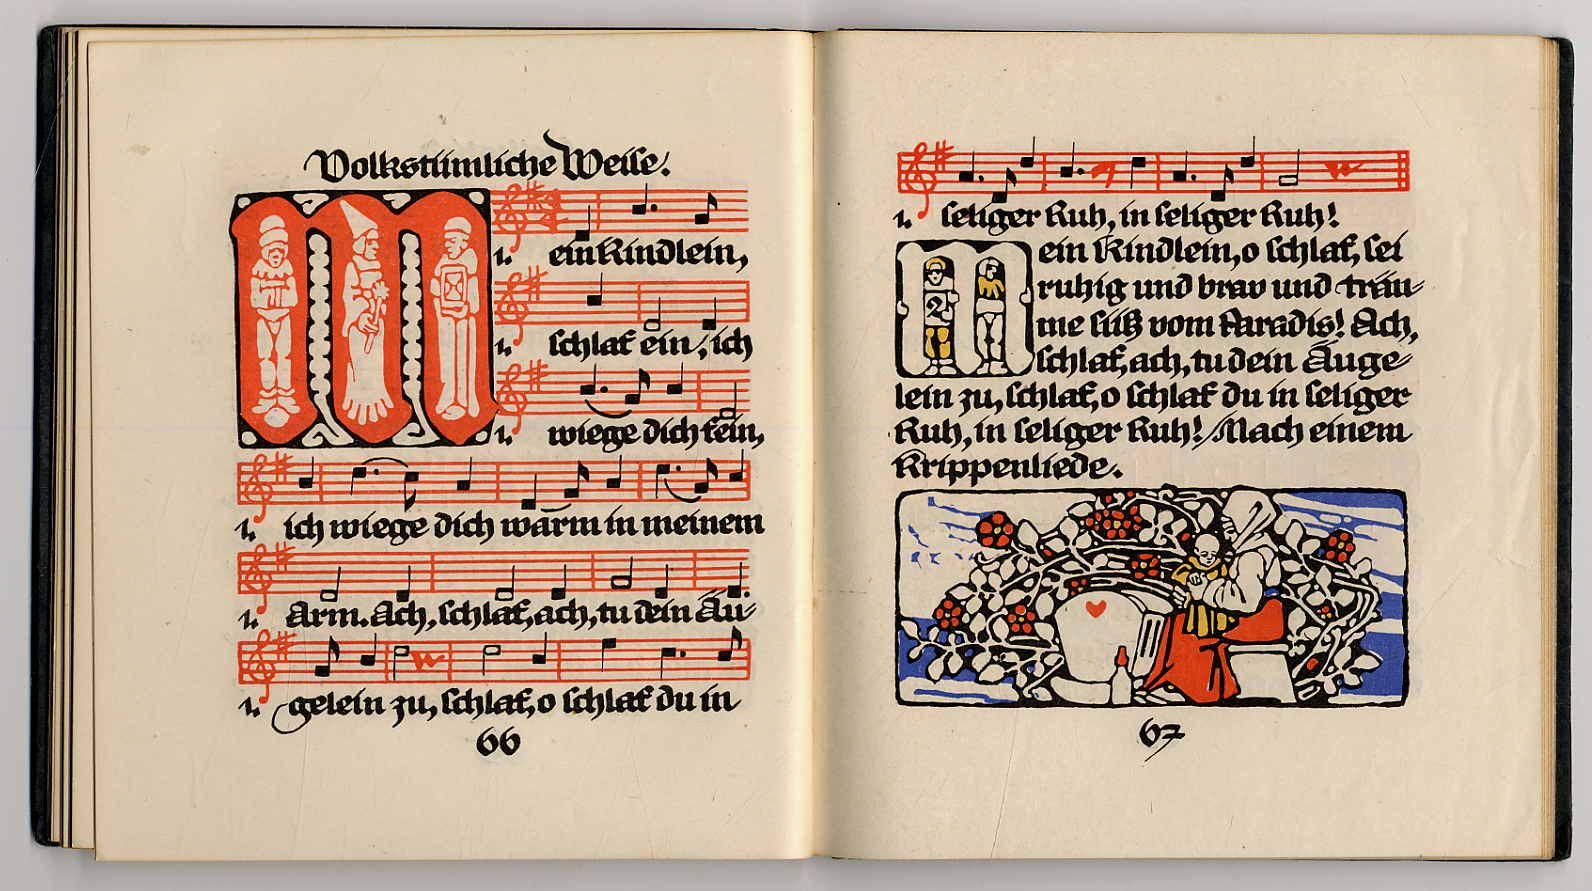 Volkstümliche Weise.
M
1. ein Kindlein,
1. schlaf ein, ich
1. wiege dich fein,
1. ich wiege dich warm in meinem
1. Arm. Ach, schlaf, ach, tu dein Äu-
1. gelein zu, schlaf, o schlaf du in
66
1. seliger Ruh, in seliger Ruh!
M ein Kindlein, o schlaf, sei
2. ruhig und brav und träu-
me süß vom Paradis! Ach,
schlaf, ach, tu dein Äuge-
lein zu, schlaf, o schlaf du in seliger
Ruh, in seliger Ruh! / Nach einem
Krippenliede.
67